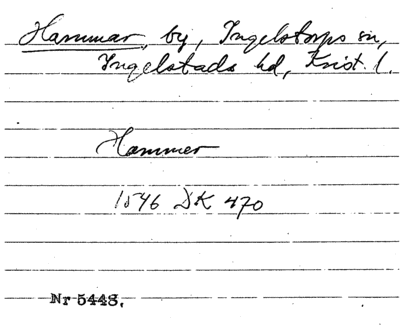 Hammar, by, Ingelstorps sn,
Ingelstads hd, Krist. l.
Hammer
1546 DK 470
Nr 5448.